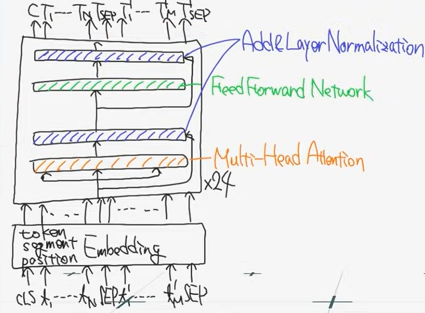 C T₁ ---- T_N T_SEP T₁' --- T_M' T_SEP
Add & Layer Normalization
Feed Forward Network
Multi-Head Attention
x24
token
segment
position
Embedding
CLS t₁ ---- t_N SEP t₁' ---- t_M' SEP